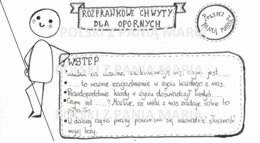 ROZPRAWKOWE CHWYTY
DLA OPORNYCH
POLSKI
Z PANIĄ MARIĄ
WSTĘP
się, czym jest....
.... to ważne zagadnienie w życiu każdego z nas.
Prawdopodobnie każdy w życiu doświadczył kiedyś....
Czym jest .....? Myślę, że wielu z nas zadaje sobie to
W dalszej części pracy postaram się udowodnić słuszność
mojej tezy.